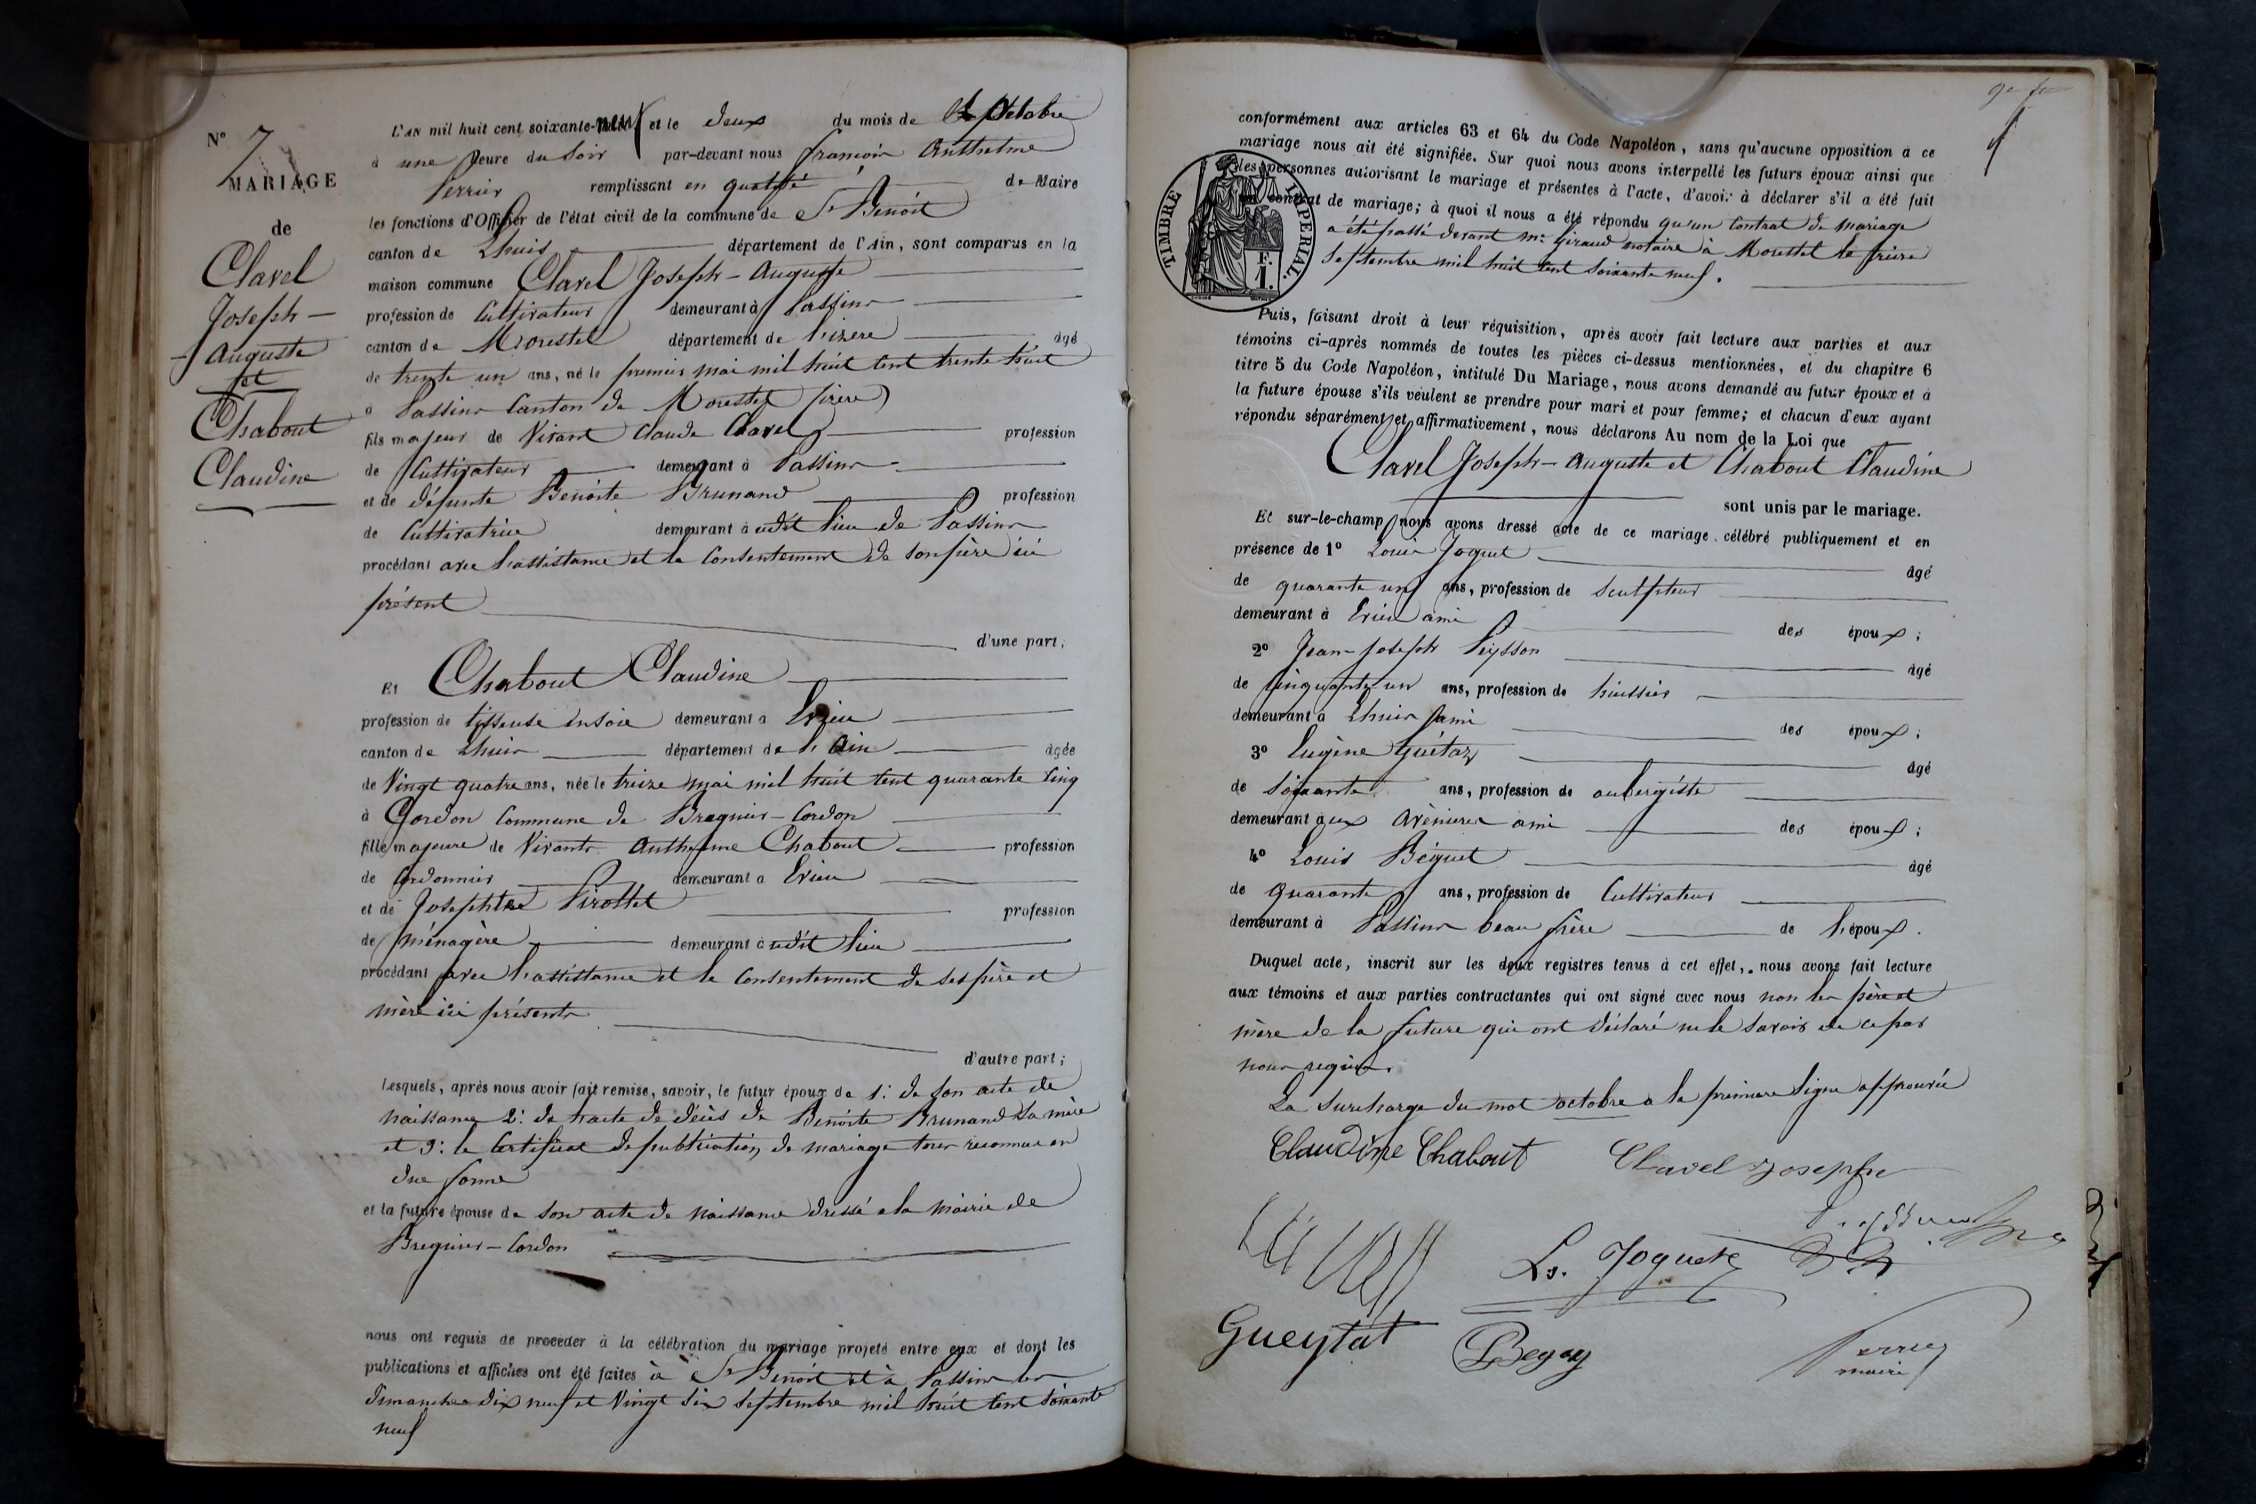 N° 7
MARIAGE
de
Clavel
Joseph-
Auguste
et
Chabout
Claudine
L'AN mil huit cent soixante-neuf et le deux du mois de Octobre
à une heure du soir par-devant nous françois Anthelme
Perrier remplissant en qualité de Maire
les fonctions d'Officier de l'état civil de la commune de St Benoit
canton de Lhuis département de l'Ain, sont comparus en la
maison commune Clavel Joseph-Auguste
profession de Cultivateur demeurant à Passins
canton de Morestel département de l'isère âgé
de trente un ans, né le premier mai mil huit cent trente huit
à Passins Canton de Morestel (isère)
fils majeur de Vivant Claude Clavel profession
de Cultivateur demeurant à Passins
et de défunte Benoite Brunand profession
de Cultivatrice demeurant à udit lieu de Passins
procédant avec l'assistance et le Consentement de son père ici
présent
d'une part;
Et Chabout Claudine
profession de tisseuse en soie demeurant à Evieu
canton de Lhuis département de l'Ain âgée
de Vingt quatre ans, née le treize mai mil huit cent quarante cinq
à Cordon Commune de Bregnier-Cordon
fille majeure de Vivants Anthelme Chabout profession
de Cordonnier demeurant à Evieu
et de Josephte Pirottet profession
de ménagère demeurant à udit lieu
procédant avec l'assistance et le Consentement de ses père et
mère ici présents
d'autre part;
Lesquels, après nous avoir fait remise, savoir, le futur époux de 1: de son acte de
naissance 2: de l'acte de décès de Benoite Brunand sa mère
et 3: le Certificat de publication de mariage tous reconnus en
due forme
et la future épouse de son acte de naissance dressé a la mairie de
Bregnier-Cordon
nous ont requis de procéder à la célébration du mariage projeté entre eux et dont les
publications et affiches ont été faites à St Benoit et à Passins les
dimanches dix neuf et Vingt six septembre mil huit cent soixante
neuf
conformément aux articles 63 et 64 du Code Napoléon, sans qu'aucune opposition à ce
mariage nous ait été signifiée. Sur quoi nous avons interpellé les futurs époux ainsi que
les personnes autorisant le mariage et présentes à l'acte, d'avoir à déclarer s'il a été fait
un contrat de mariage; à quoi il nous a été répondu qu'un Contrat de mariage
a été passé devant me Giraud notaire à Morestel le treize
septembre mil huit cent soixante neuf.
TIMBRE IMPERIAL.
F.
1.
Puis, faisant droit à leur réquisition, après avoir fait lecture aux parties et aux
témoins ci-après nommés de toutes les pièces ci-dessus mentionnées, et du chapitre 6
titre 5 du Code Napoléon, intitulé Du Mariage, nous avons demandé au futur époux et à
la future épouse s'ils veulent se prendre pour mari et pour femme; et chacun d'eux ayant
répondu séparément et affirmativement, nous déclarons Au nom de la Loi que
Clavel Joseph-Auguste et Chabout Claudine
sont unis par le mariage.
Et sur-le-champ nous avons dressé acte de ce mariage célébré publiquement et en
présence de 1° Louis Joquet âgé
de quarante un ans, profession de sculpteur
demeurant à Evieu ami des époux;
2° Jean-Joseph Peysson âgé
de cinquante un ans, profession de huissier
demeurant à Lhuis ami des époux;
3° Eugène Guétaz âgé
de soixante ans, profession de aubergiste
demeurant aux Avénieres ami des époux;
4° Louis Béguet âgé
de quarante ans, profession de Cultivateur
demeurant à Passins beau frère de l'époux.
Duquel acte, inscrit sur les deux registres tenus à cet effet, nous avons fait lecture
aux témoins et aux parties contractantes qui ont signé avec nous non les père et
mère de la future qui ont déclaré ne le savoir de ce par
nous requis.
La surcharge du mot octobre a la premiere ligne approuvée
Claudine Chabout Clavel Josephe
Ls. Joguet
Gueytat
Perrier
maire